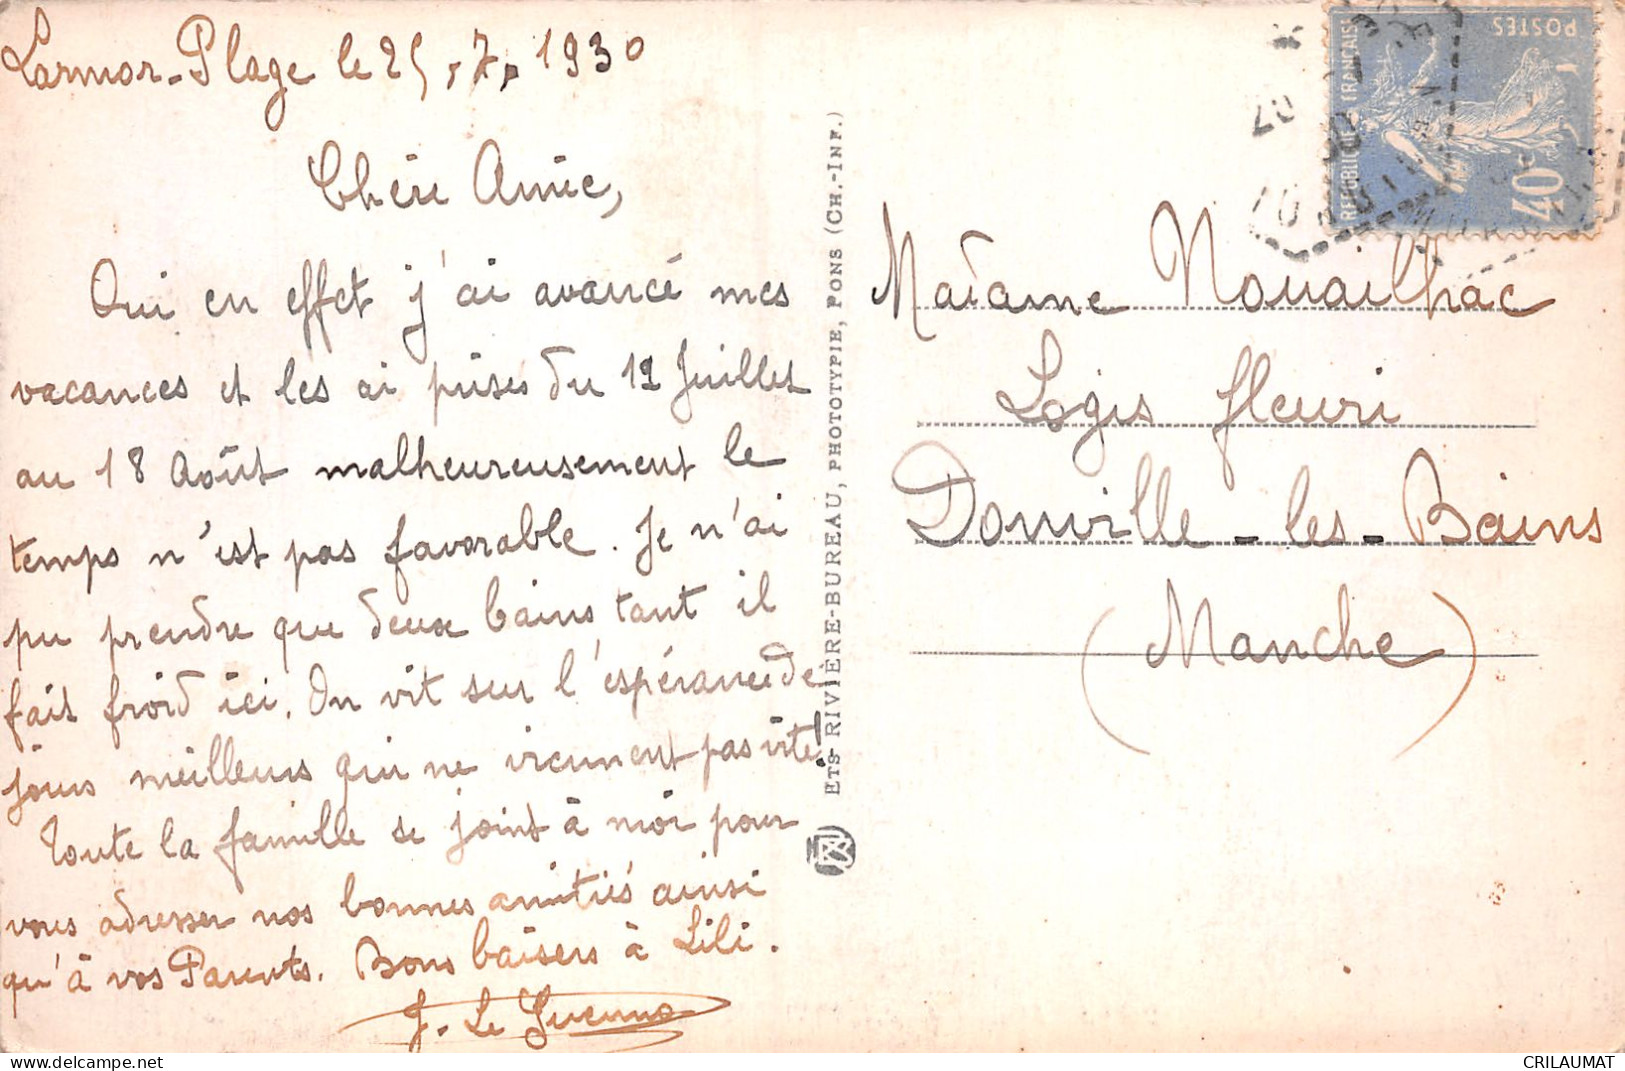 Larmor-Plage le 25.7.1930
Chère Amie,
Oui en effet j'ai avancé mes
vacances et les ai prises du 12 Juillet
au 18 Août malheureusement le
temps n'est pas favorable. Je n'ai
pu prendre que deux bains tant il
fait froid ici. On vit sur l'espérance de
jours meilleurs qui ne viennent pas vite!
Toute la famille se joint à moi pour
vous adresser nos bonnes amitiés ainsi
qu'à vos Parents. Bons baisers à Lili.
J. Le Guenno
ETS RIVIÈRE-BUREAU, PHOTOTYPIE, PONS (CH.-INF.)
REPUBLIQUE FRANÇAISE
POSTES
40c
Madame Nouailhac
Logis fleuri
Donville-les-Bains
(Manche)
CRILAUMAT